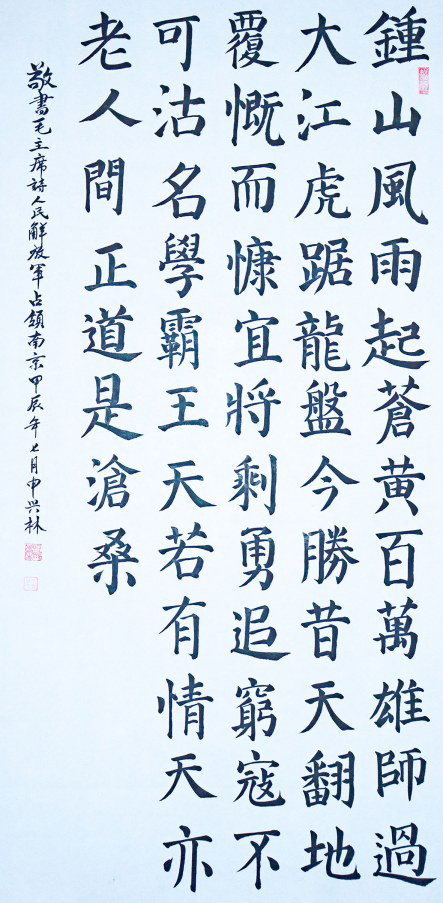 鍾山風雨起蒼黄百萬雄師過
大江虎踞龍盤今勝昔天翻地
覆慨而慷宜將剩勇追窮寇不
可沽名學霸王天若有情天亦
老人間正道是滄桑
敬書毛主席詩人民解放軍占領南京甲辰年七月申兴林